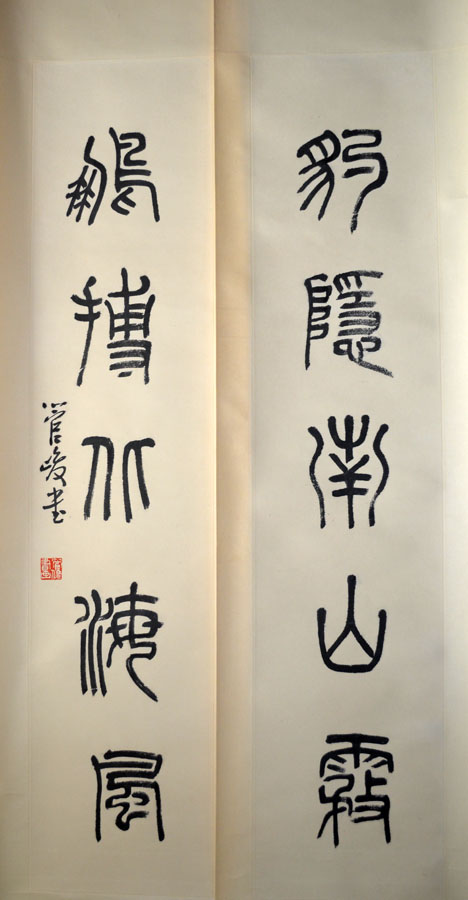 豹隱南山霧
鵬搏北海風
管峻书